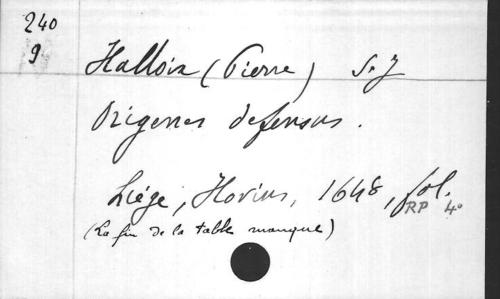 240
9
Halloix (Pierre) S.J
Origenes defensus.
Liége, Hovius, 1648, fol.
RP 4°
(La fin de la table manque)